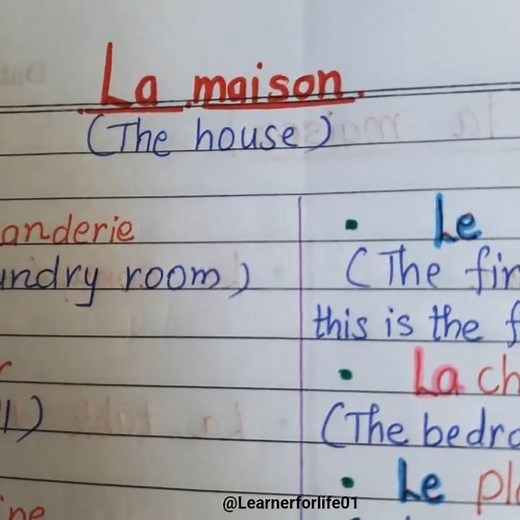 La maison.
(The house)
anderie
undry room)
r
ll)
ine
• Le
(The fir
this is the f
• La ch
(The bedro
• Le pl
@Learnerforlife01